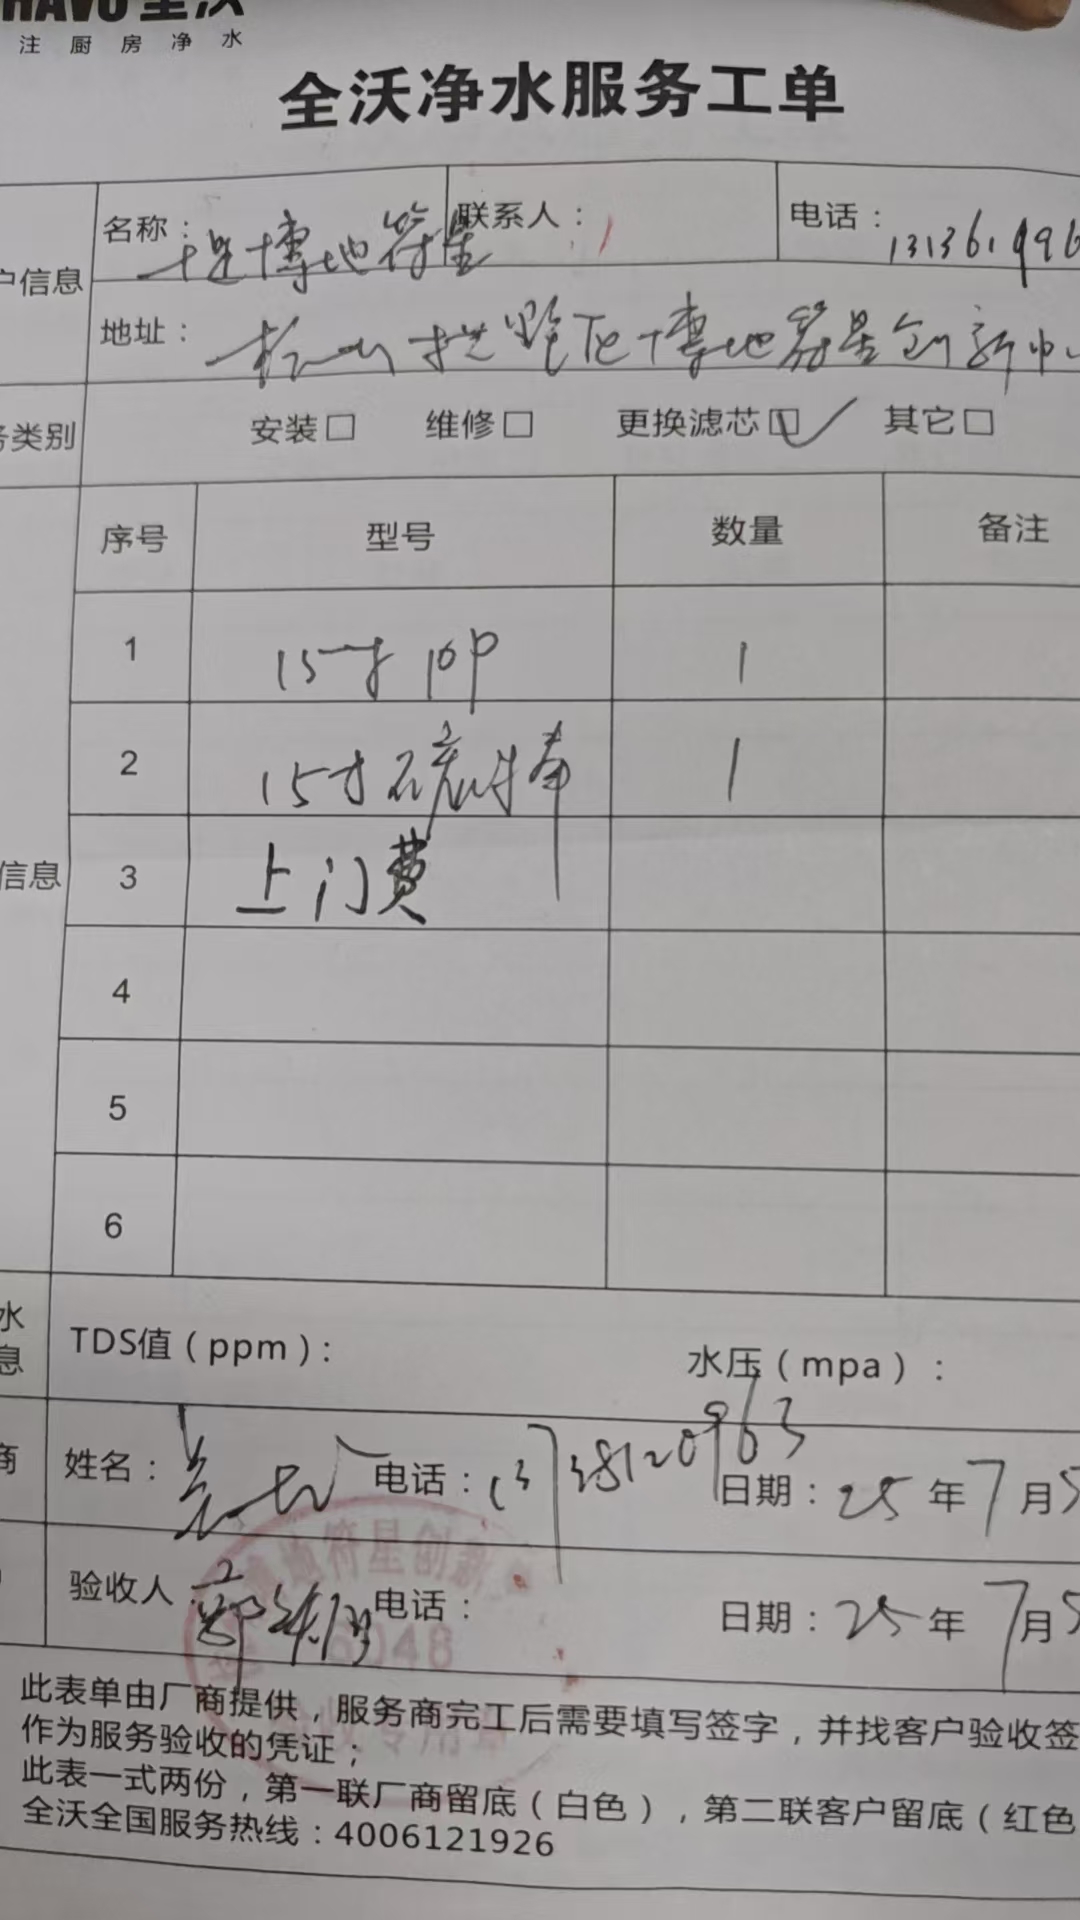 全沃
注厨房净水
全沃净水服务工单
名称: 博地符星 联系人: 电话: 13136199
户信息
地址: 杭州拱墅区博地符星创新中心
务类别 安装□ 维修□ 更换滤芯□✓ 其它□
序号 型号 数量 备注
1 15寸 10P 1
2 15寸碳棒 1
信息 3 上门费
4
5
6
水 TDS值(ppm): 水压(mpa):
息
商 姓名: 电话: 13738120963 日期: 25年7月5
验收人: 电话: 日期: 25年7月5
地符星创新
6048
此表单由厂商提供,服务商完工后需要填写签字,并找客户验收签
作为服务验收的凭证;
此表一式两份,第一联厂商留底(白色),第二联客户留底(红色
全沃全国服务热线:4006121926